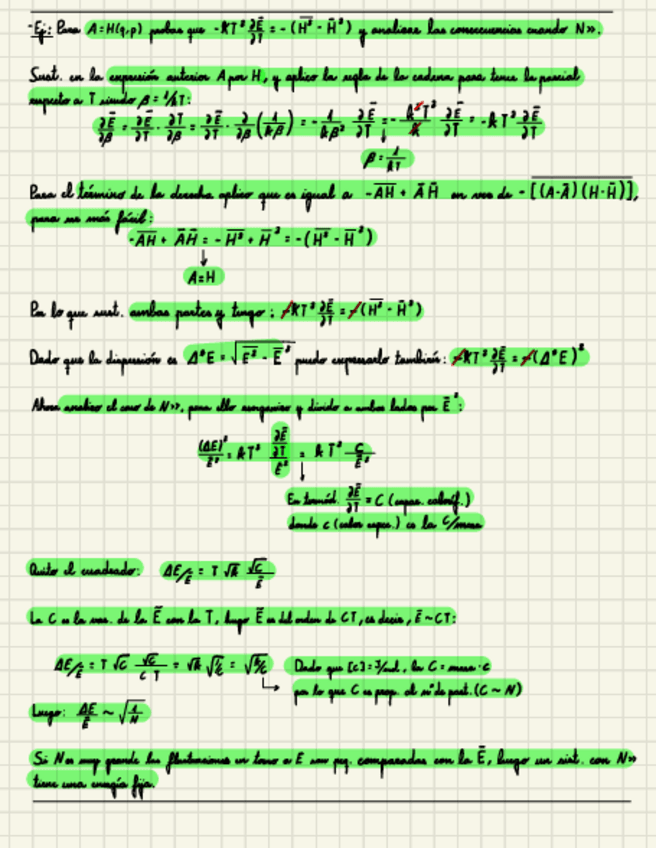 -Ej: Para A=H(q,p) probar que -KT² ∂Ē/∂T = -(H̅²̅ - H̄²) y analizar las consecuencias cuando N».
Sust. en la expresión anterior A por H, y aplico la regla de la cadena para tener la parcial
respecto a T siendo β = 1/kT:
∂Ē/∂β = ∂Ē/∂T · ∂T/∂β = ∂Ē/∂T · ∂/∂β (1/kβ) = -1/kβ² ∂Ē/∂T = -k²T²/k ∂Ē/∂T = -kT² ∂Ē/∂T
β = 1/kT
Para el término de la derecha aplico que es igual a -A̅H̅ + Ā H̄ en vez de -[(A-Ā)(H-H̄)],
para ser más fácil:
-A̅H̅ + ĀH̄ = -H̅²̅ + H̄² = -(H̅²̅ - H̄²)
A=H
Por lo que sust. ambas partes y tengo: -KT² ∂Ē/∂T = -(H̅²̅ - H̄²)
Dado que la dispersión es Δ*E = √(E̅²̅ - Ē²) puedo expresarlo también: -KT² ∂Ē/∂T = -(Δ*E)²
Ahora analizo el caso de N», para ello y divido a ambos lados por Ē²:
(ΔE)²/Ē² = kT² (∂Ē/∂T)/Ē² = kT² C/Ē²
En termód. ∂Ē/∂T = C (capac. caloríf.)
donde c (calor espec.) es la C/masa
Quito el cuadrado: ΔE/Ē = T √k √C/Ē
La C es la var. de la Ē con la T, luego Ē es del orden de CT, es decir, Ē~CT:
ΔE/Ē = T √C √C/CT = √k √1/C = √k/C Dado que [c] = J/mol, la C = masa·c
por lo que C es prop. al nº de part. (C~N)
Luego: ΔE/Ē ~ √1/N
Si N es muy grande las fluctuaciones en torno a E son peq. comparadas con la Ē, luego un sist. con N»
tiene una energía fija.